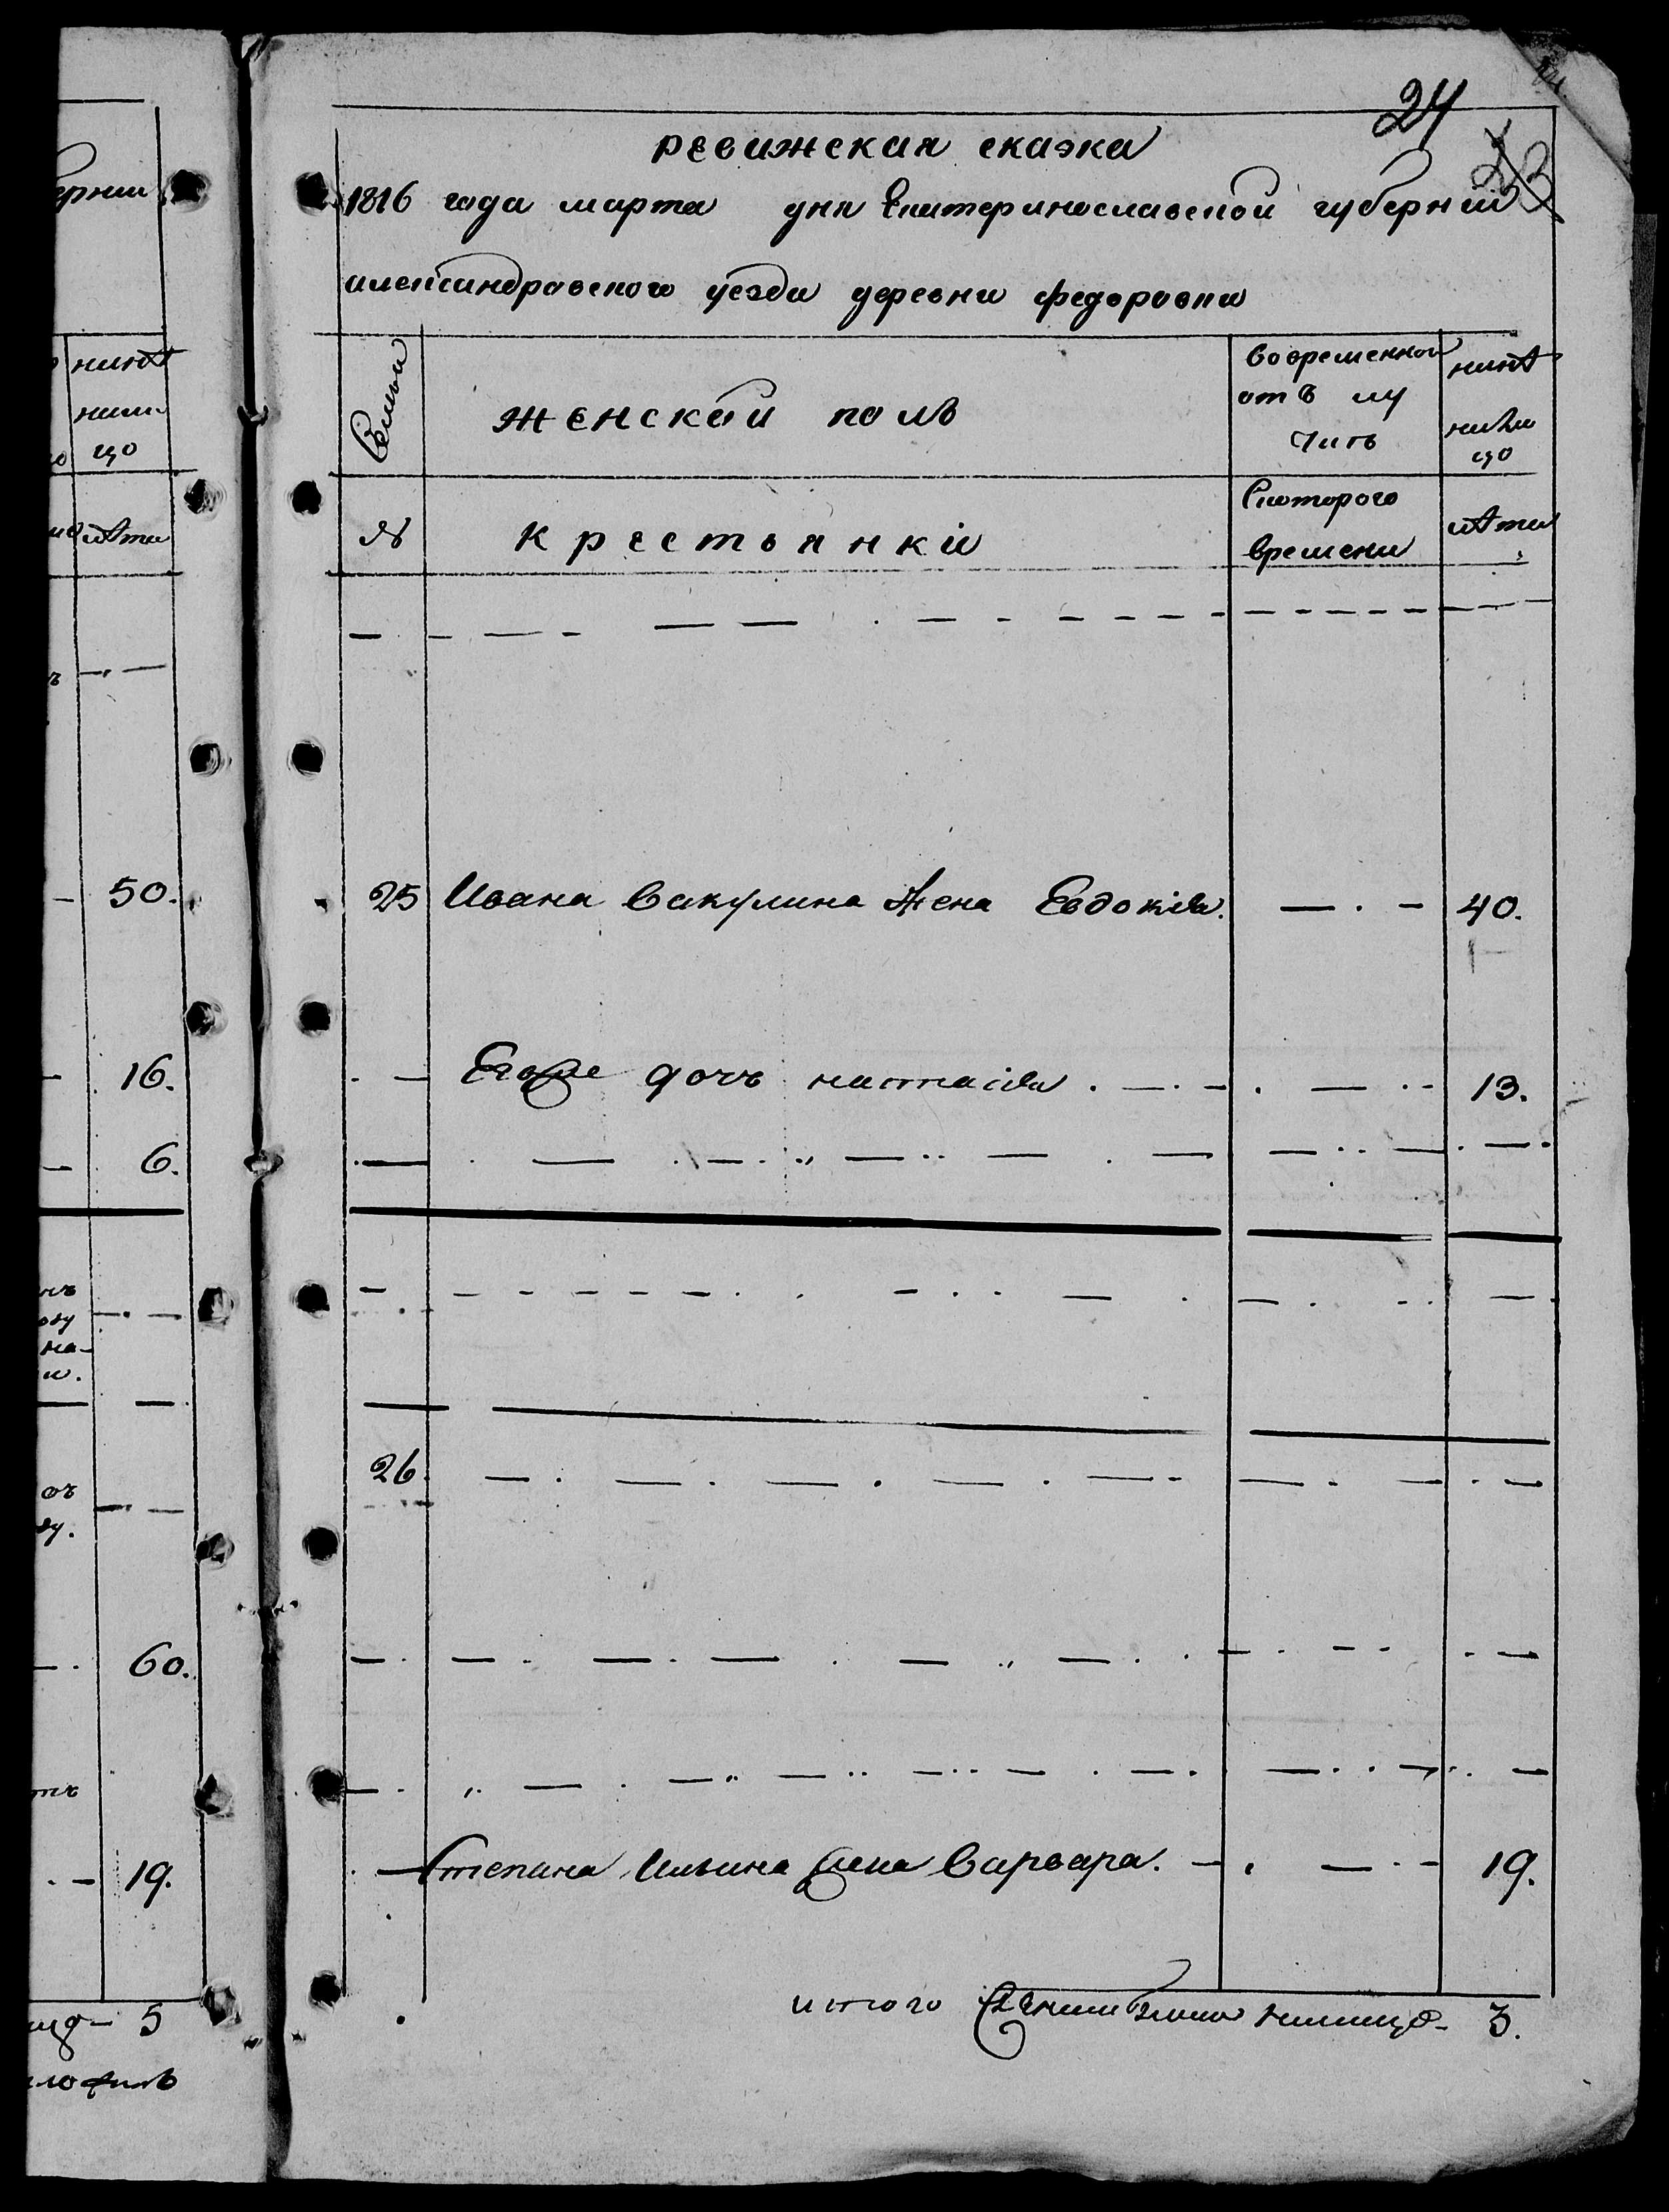 24
23
ревижская сказка
1816 года марта дня Екатеринославской губерніи
александравского уезда деревни федоровки
Семьи
женской полъ
вовременной
отъ лу
чить
нинѣ
на ли
цо
№
крестьянкіи
Скоторого
времени
лѣта
25 Ивана Вакулина жена Евдокіа. 40.
Егоже дочь настасіа. 13.
26
Степана Ильина жена Варвара. 19.
итого женска налицо 3.
ерніи
нинѣ
нали
цо
лѣта
50.
16.
6.
60.
19.
5